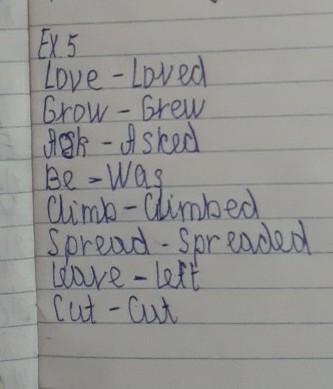 Ex 5
Love - Loved
Grow - Grew
Ask - Asked
Be - Was
Climb - Climbed
Spread - Spreaded
Leave - Left
Cut - Cut